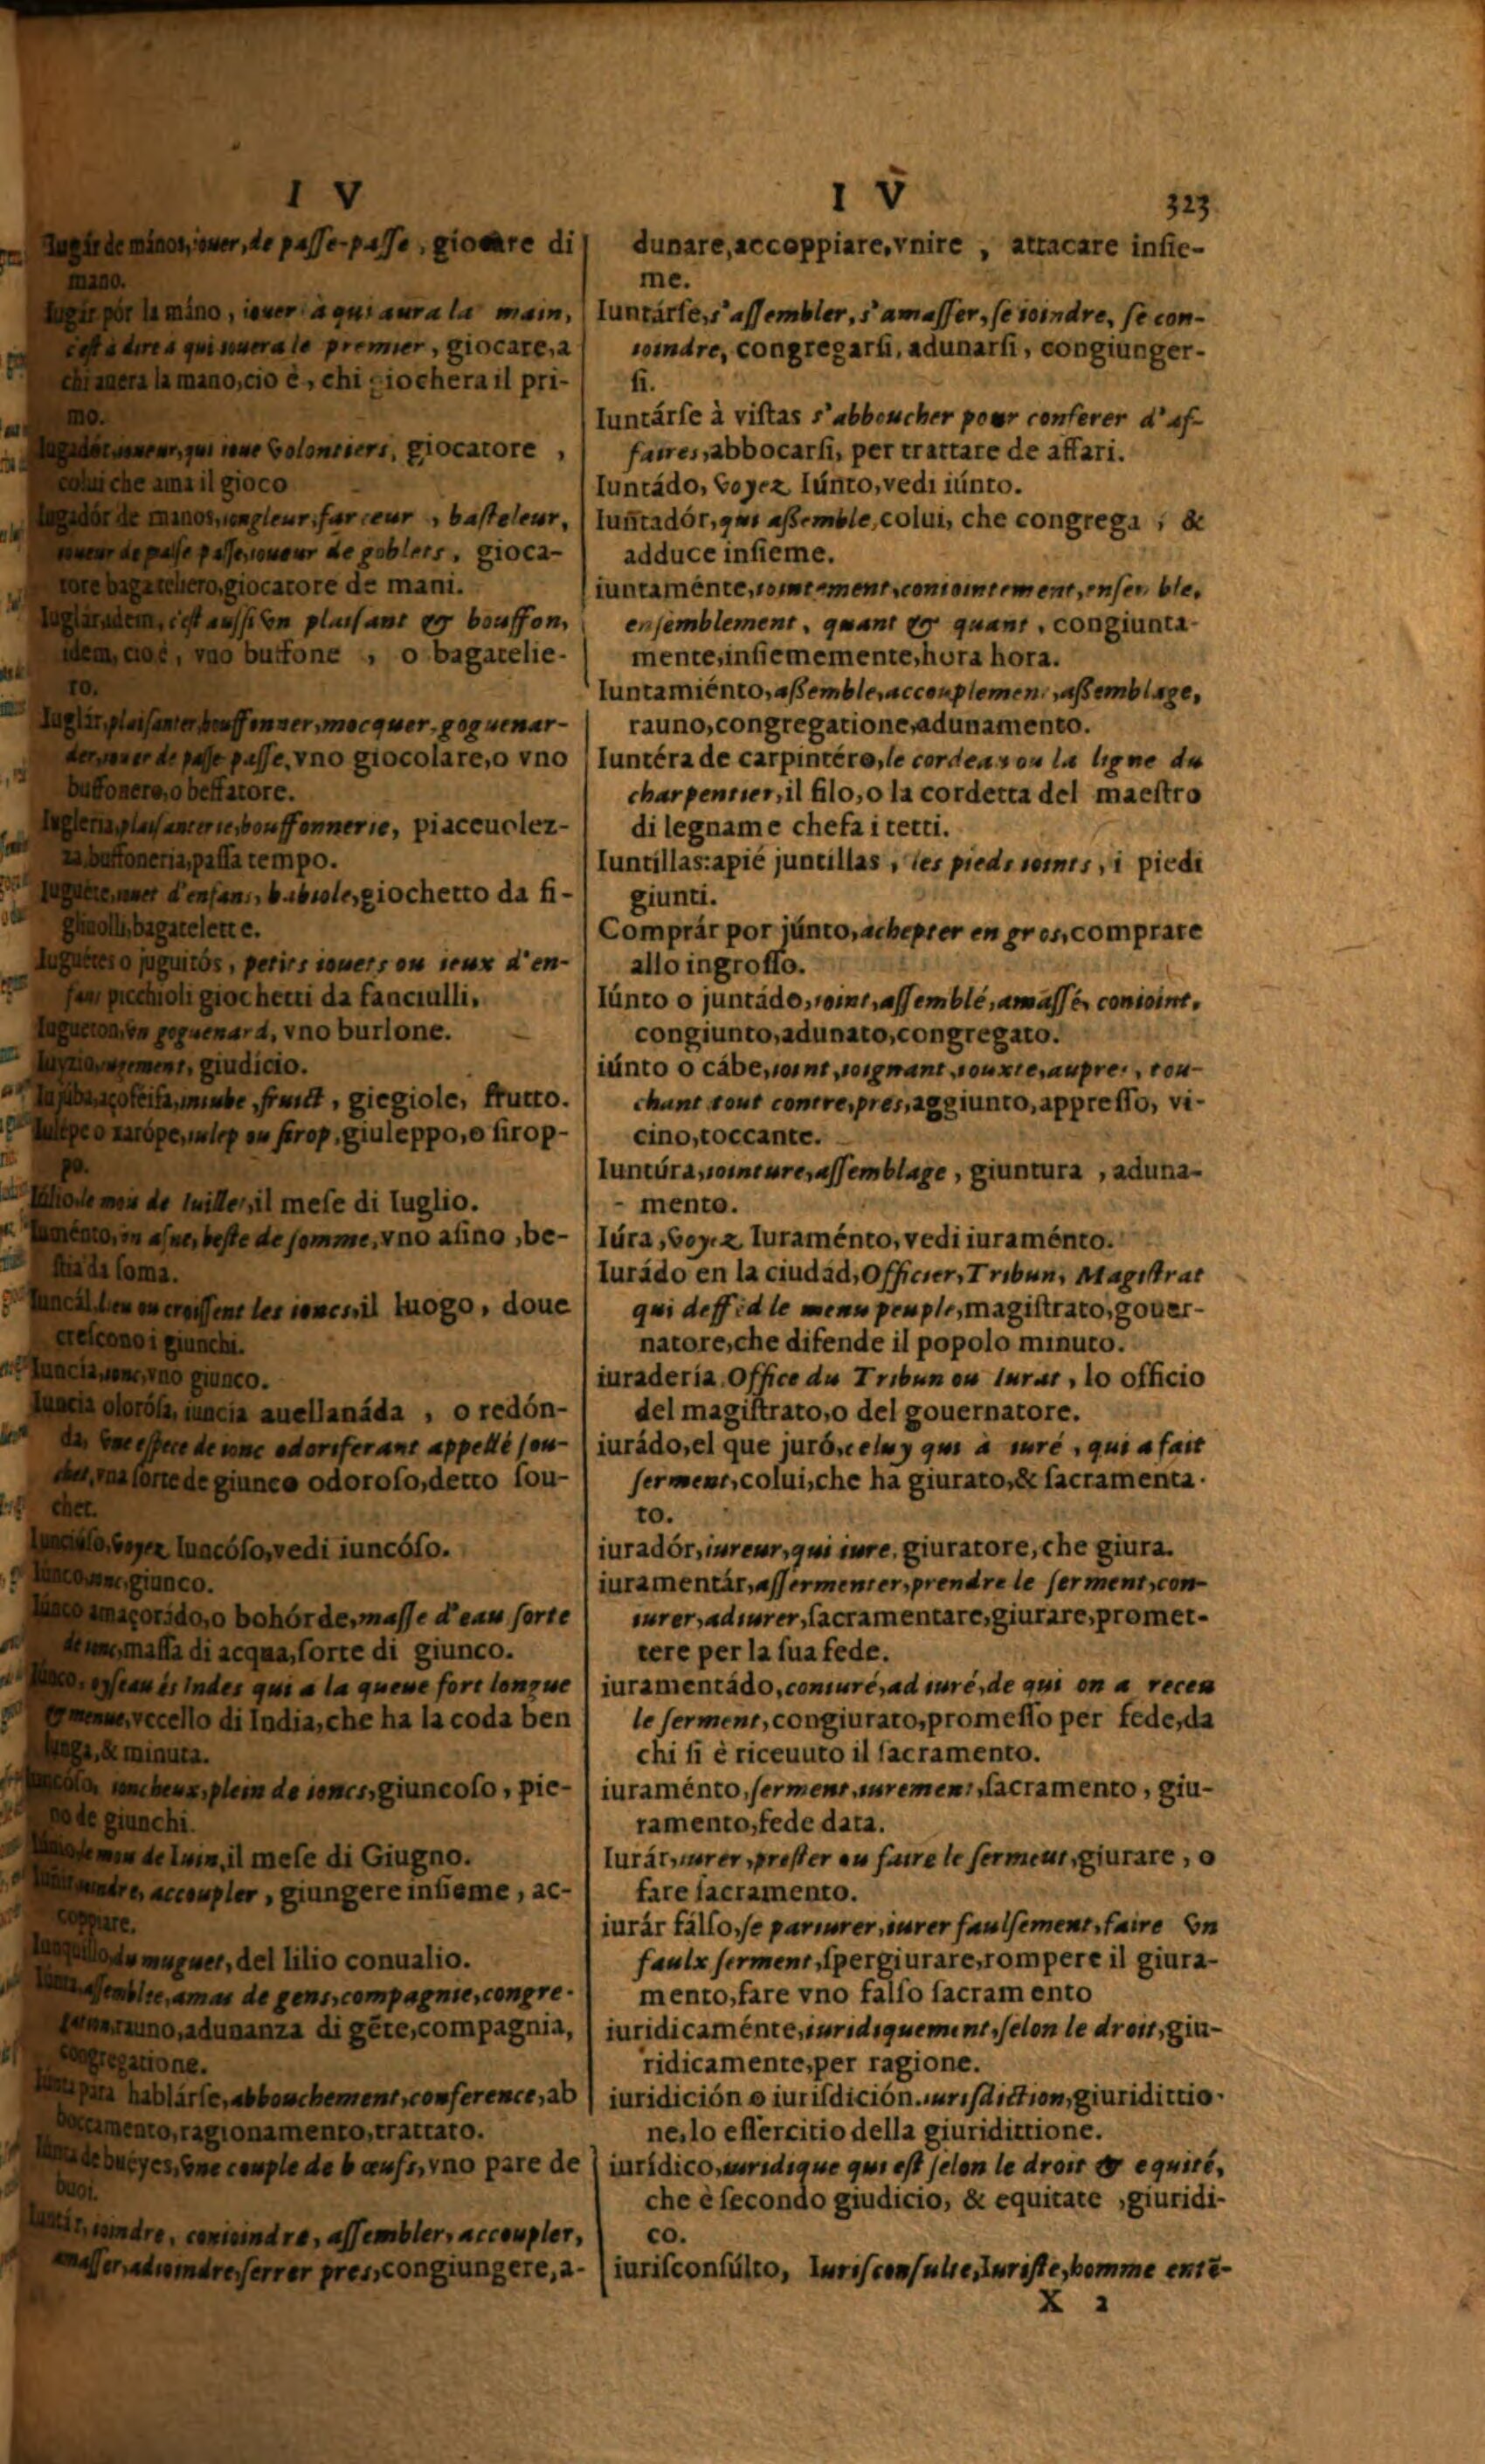 I V
Iugár de mános, iouer, de paſſe-paſſe, giocare di
mano.
Iugár pór la máno, iouer à qui aura la main,
c'eſt à dire à qui iouera le premier, giocare, a
chi auera la mano, cio è, chi giochera il pri-
mo.
Iugadór, ioueur, qui ioue volontiers, giocatore,
colui che ama il gioco
Iugadór de manos, iongleur, farceur, baſteleur,
ioueur de paſſe paſſe, ioueur de goblets, gioca-
tore bagateliero, giocatore de mani.
Iuglár, idem, c'eſt auſſi vn plaiſant & bouffon,
idem, cio è, vno buffone, o bagatelie-
ro.
Iuglár, plaiſanter, bouffonner, mocquer, goguenar-
der, iouer de paſſe paſſe, vno giocolare, o vno
buffonere, o beffatore.
Iugleria, plaiſanterie, bouffonnerie, piaceuolez-
za, buffoneria, paſſa tempo.
Iuguéte, iouet d'enfans, babiole, giochetto da fi-
gliuolli, bagatelette.
Iuguétes o juguitós, petits iouets ou ieux d'en-
fans picchioli giochetti da fanciulli,
Iugueton, vn goguenard, vno burlone.
Iuyzio, iugement, giudicio.
Iujúba, açofeifa, iuiube, fruict, giegiole, frutto.
Iulépe o xarópe, iulep ou ſirop, giuleppo, o ſirop-
po.
Iúlio, le mois de Iuillet, il meſe di Iuglio.
Iuménto, vn aſne, beſte de ſomme, vno aſino, be-
ſtia da ſoma.
Iuncál, lieu ou croiſſent les ioncs, il luogo, doue
creſcono i giunchi.
Iuncia, ionc, vno giunco.
Iuncia oloróſa, iuncia auellanáda, o redón-
da, vne eſpece de ionc odoriferant appellé ſou-
chet, vna ſorte de giunco odoroſo, detto ſou-
chet.
Iunciáſo, voyez Iuncóſo, vedi iuncóſo.
Iúnco, ionc, giunco.
Iúnco amaçorádo, o bohórde, maſſe d'eau ſorte
de ionc, maſſa di acqua, ſorte di giunco.
Iúnco, oyſeau és Indes qui a la queue fort longue
& menue, vccello di India, che ha la coda ben
longa, & minuta.
Iuncóſo, ioncheux, plein de ioncs, giuncoſo, pie-
no de giunchi.
Iúnio, le mois de Iuin, il meſe di Giugno.
Iuñir, ioindre, accoupler, giungere inſieme, ac-
coppiare.
Iunquillo, du muguet, del lilio conualio.
Iúnta, aſſemblee, amas de gens, compagnie, congre-
rauno, adunanza di gẽte, compagnia,
congregatione.
Iúnta para hablárſe, abbouchement, conference, ab
boccamento, ragionamento, trattato.
Iúnta de buéyes, vne couple de bœufs, vno pare de
buoi.
Iuntár, ioindre, conioindre, aſſembler, accoupler,
amaſſer, adioindre, ſerrer pres, congiungere, a-
I V
323
dunare, accoppiare, vnire, attacare inſie-
me.
Iuntárſe, s'aſſembler, s'amaſſer, ſe ioindre, ſe con-
ioindre, congregarſi, adunarſi, congiunger-
ſi.
Iuntárſe à viſtas s'abboucher pour conferer d'af-
faires, abbocarſi, per trattare de affari.
Iuntádo, voyez Iúnto, vedi iúnto.
Iuñtadór, qui aſſemble, colui, che congrega; &
adduce inſieme.
iuntaménte, iointement, conioinctement, enſemble,
enſemblement, quant & quant, congiunta-
mente, inſiememente, hora hora.
Iuntamiénto, aſſemble, accouplement, aſſemblage,
rauno, congregatione, adunamento.
Iuntéra de carpintéro, le cordeau ou la ligne du
charpentier, il filo, o la cordetta del maeſtro
di legname che fa i tetti.
Iuntíllas: apié juntillas, les pieds ioints, i piedi
giunti.
Comprár por júnto, achepter en gros, comprare
allo ingroſſo.
Iúnto o juntádo, ioint, aſſemblé, amaſſé, conioint,
congiunto, adunato, congregato.
iúnto o cábe, ioint, ioignant, iouxte, aupres, tou-
chant tout contre, pres, aggiunto, appreſſo, vi-
cino, toccante.
Iuntúra, iointure, aſſemblage, giuntura, aduna-
mento.
Iúra, voyez Iuraménto, vedi iuraménto.
Iurádo en la ciudád, Officier, Tribun, Magiſtrat
qui deffẽd le menu peuple, magiſtrato, gouer-
natore, che difende il popolo minuto.
iuradería. Office du Tribun ou Iurat, lo officio
del magiſtrato, o del gouernatore.
iurádo, el que juró, celuy qui à iuré, qui a fait
ſerment, colui, che ha giurato, & ſacramenta-
to.
iuradór, iureur, qui iure, giuratore, che giura.
iuramentár, aſſermenter, prendre le ſerment, con-
iurer, adiurer, ſacramentare, giurare, promet-
tere per la ſua fede.
iuramentádo, coniuré, ad iuré, de qui on a receu
le ſerment, congiurato, promeſſo per fede, da
chi ſi è riceuuto il ſacramento.
iuraménto, ſerment, iurement, ſacramento, giu-
ramento, fede data.
Iurár, iurer, preſter ou faire le ſerment, giurare, o
fare ſacramento.
iurár fálſo, ſe pariurer, iurer faulſement, faire vn
faulx ſerment, ſpergiurare, rompere il giura-
mento, fare vno falſo ſacramento
iuridicaménte, iuridiquement, ſelon le droit, giu-
ridicamente, per ragione.
iuridición o iuriſdición. iuriſdiction, giuridittio-
ne, lo eſſercitio della giuridittione.
iurídico, iuridique qui eſt ſelon le droit & equité,
che è ſecondo giudicio, & equitate, giuridi-
co.
iuriſconſúlto, Iuriſconſulte, Iuriſte, homme entẽ-
X 2